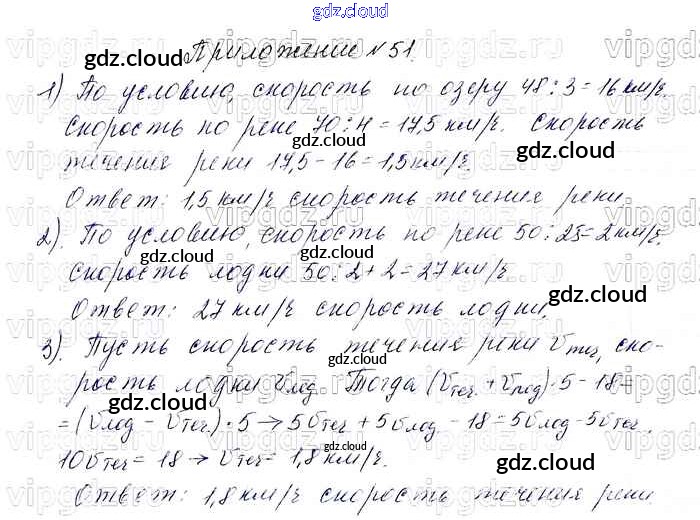 gdz.cloud
Приложение №51.
1) По условию, скорость по озеру 48:3=16 км/ч.
Скорость по реке 70:4=17,5 км/ч. Скорость
течения реки 17,5-16=1,5 км/ч.
Ответ: 1,5 км/ч скорость течения реки.
2). По условию, скорость по реке 50:25=2 км/ч.
Скорость лодки 50:2+2=27 км/ч
Ответ: 27 км/ч скорость лодки.
3). Пусть скорость течения реки Vтеч, ско-
рость лодки Vлод. Тогда (Vтеч+Vлод)·5-18=
=(Vлод-Vтеч)·5→5Vтеч+5Vлод-18=5Vлод-5Vтеч.
10Vтеч=18→Vтеч=1,8 км/ч.
Ответ: 1,8 км/ч скорость течения реки.